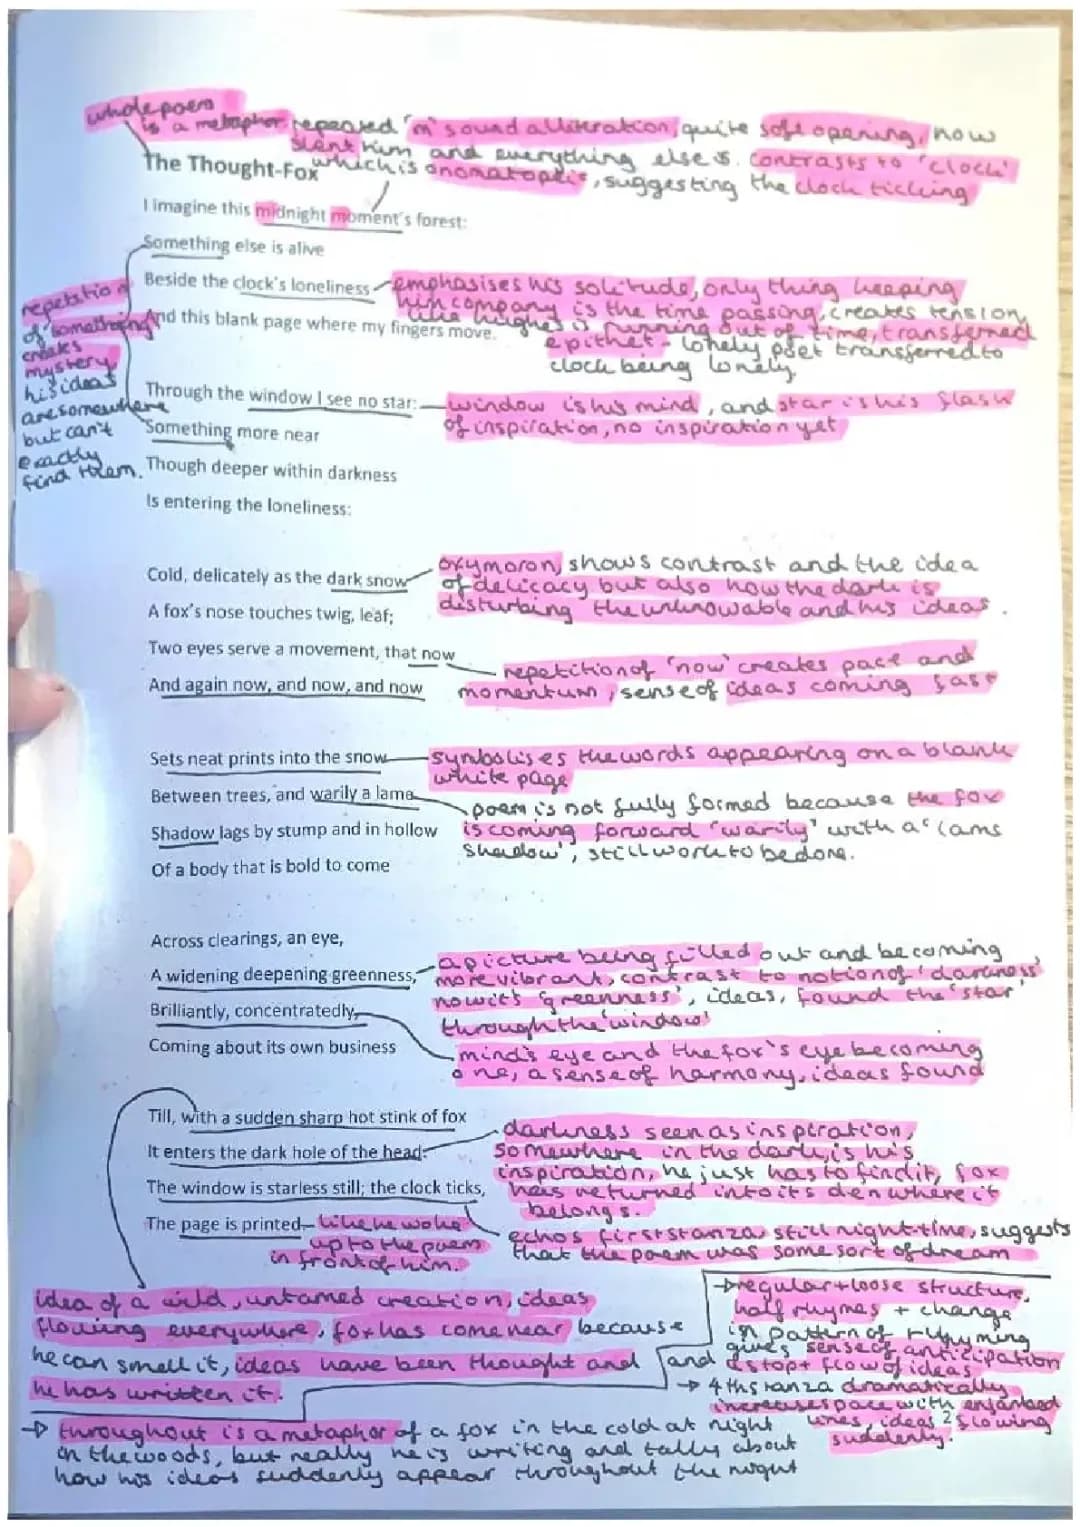 whole poem
is a metaphor
repeated 'm' sound alliteration, quite soft opening, now
silent him and everything else is. contrasts to 'clock'
which is onomatopeic, suggesting the clock ticking
The Thought-Fox
I imagine this midnight moment's forest:
Something else is alive
Beside the clock's loneliness
And this blank page where my fingers move.
emphasises his solitude, only thing keeping
him company is the time passing, creates tension,
like hughes is running out of time, transferred
epithet - lonely poet transferred to
clock being lonely.
repetition
of 'something'
creates
mystery,
his ideas
are somewhere
but can't
exactly
find them.
Through the window I see no star:
Something more near
Though deeper within darkness
Is entering the loneliness:
window is his mind, and star is his flash
of inspiration, no inspiration yet
Cold, delicately as the dark snow
A fox's nose touches twig, leaf;
Two eyes serve a movement, that now
And again now, and now, and now
oxymoron, shows contrast and the idea
of delicacy but also how the dark is
disturbing the unknowable and his ideas.
repetition of 'now' creates pace and
momentum, sense of ideas coming fast
Sets neat prints into the snow
Between trees, and warily a lame
Shadow lags by stump and in hollow
Of a body that is bold to come
symbolises the words appearing on a blank
white page
poem is not fully formed because the fox
is coming forward 'warily' with a 'lame
shadow', still work to be done.
Across clearings, an eye,
A widening deepening greenness,
Brilliantly, concentratedly,
Coming about its own business
a picture being filled out and becoming
more vibrant, contrast to notion of 'darkness'
now it's 'greenness', ideas, found the 'star'
through the 'window'
mind's eye and the fox's eye becoming
one, a sense of harmony, ideas found
Till, with a sudden sharp hot stink of fox
It enters the dark hole of the head.
The window is starless still; the clock ticks,
The page is printed.
darkness seen as inspiration,
somewhere in the dark, is his
inspiration, he just has to find it, fox
has returned into its den where it
belongs.
like he woke
up to the poem
in front of him.
echos first stanza, still night-time, suggests
that the poem was some sort of dream
idea of a wild, untamed creation, ideas
flowing everywhere, fox has come near because
he can smell it, ideas have been thought and
he has written it.
→ regular + loose structure,
half rhymes + change
in pattern of rhyming
gives sense of anticipation
and a stop + flow of ideas
→ 4th stanza dramatically
increases pace with enjambed
lines, ideas flowing
suddenly.
→ throughout is a metaphor of a fox in the cold at night
in the woods, but really he is writing and talks about
how his ideas suddenly appear throughout the night